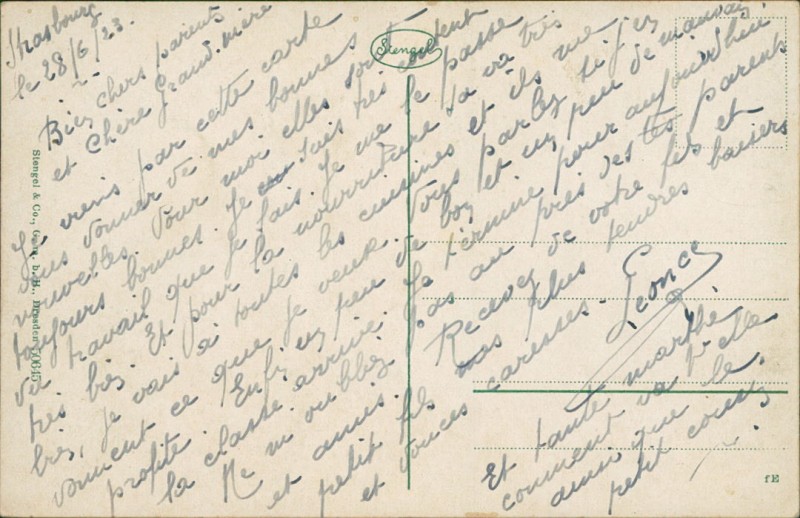 Strasbourg
le 28/6/23.
Bien chers parents
et Chère Grand'mère
Je viens par cette carte
vous donner de mes bonnes
nouvelles. Pour moi elles sont
toujours bonnes. Je suis très content
du travail que je fais. Je me le passe
très bien. Et pour la nourriture sa va très
bien, je vais à toutes les cuisines et ils me
donnent ce que je veux. Vous parlez si j'en
profite. Enfin un peu de bon et un peu de mauvais
la classe arrive. Je termine pour aujourd'hui
Ne m'oubliez pas au près des parents
et amis. Recevez de votre fils et
petit fils mes plus tendres baisers
et douces caresses.
Léonce
Et tante Marthe
comment va t'elle
ainsi que le
petit cousin
Stengel
Stengel & Co., G. m. b. H., Dresden 50645
fE